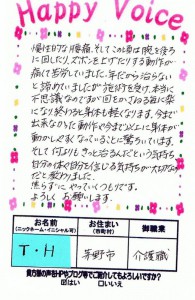 Happy Voice
慢性的な腰痛、そしてこの春は腕を後ろ
に回したり、ズボンを上げたりする動作が
痛くて苦労していました。年だから治らない
と諦めていましたが施術を受け、本当に
不思議なのですが回をかさねる毎に楽
になり終わると身体も軽くなります。今まで
出来なかった動作や今まで以上に身体が
動かしやすくなっていることに驚いています。
そして何よりもっと治るんだという気持ち
自分のからだ自分も信じる気持ちがプロなん
だと変わりました。
焦らずにやっていくつもりです。
よろしくお願いします。
お名前
(ニックネーム・イニシャル可)
お住まい
(市町村)
御職業
T・H
茅野市
介護職
貴方様の声をHPやブログ等でご紹介してもよろしいですか?
☑はい □いいえ